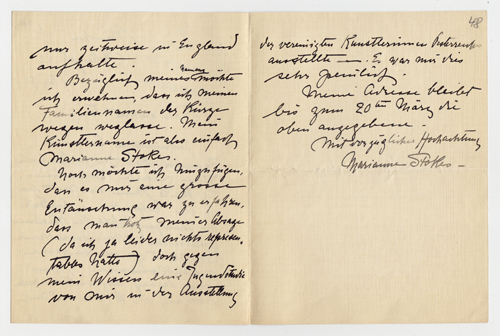 nur zeitweise in England
aufhalte.
Bezüglich meines Namens möchte
ich erwähnen, dass ich meinen
Familiennamen der Kürze
wegen weglasse. Mein
Künstlername ist also einfach
Marianne Stokes.
Noch möchte ich hinzufügen,
das es mir eine grosse
Entäuschung war zu erfahren,
dass man trotz meiner Absage
(da ich ja leider nichts represen-
tables hatte) doch gegen
mein Wissen eine Jugendstudie
von mir in der Ausstellung
48
der vereinigten Künstlerinnen Österreichs
ausstellte — Es war mir dies
sehr peinlich.
Meine Adresse bleibt
bis zum 20ten März die
oben angegebene.
Mit vorzüglicher Hochachtung
Marianne Stokes —